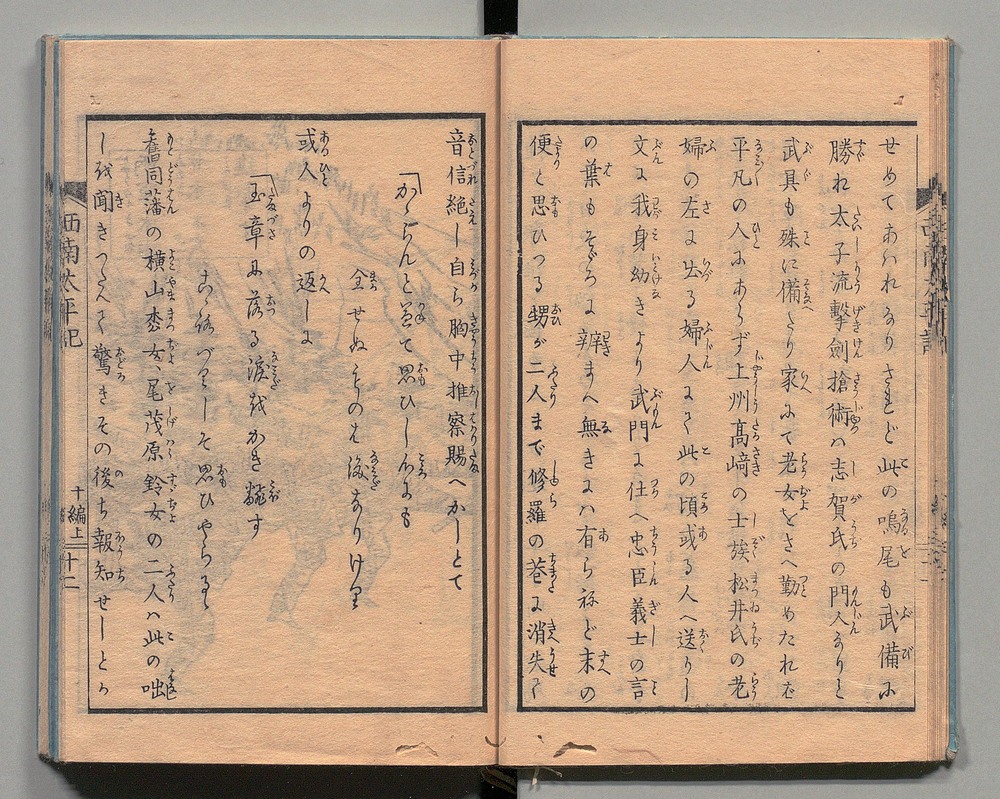 せめてあはれなりされど此の鳴尾も武備に
勝れ太子流擊劍搶術ハ志賀氏の門人なりと
武具も殊に備へたり家にて老女をさへ勤めたれば
平凡の人にあらず上州髙﨑の士族松井氏の老
婦の左に出る婦人にて此の頃或る人へ送りし
文に我身幼きより武門に仕へ忠臣義士の言
の葉もそゞろに辨まへ無きにハ有らねど末の
便と思ひつる甥が二人まで修羅の巷に消失て
音信絶し自ら胸中推察賜へかしとて
「かゝらんと兼て思ひし心にも
全せぬものは涙なりけり
或人よりの返しに
「玉章に落る涙をかき難す
こゝろづくしそ思ひやらるゝ
舊同藩の横山松女、尾茂原鈴女の二人ハ此の咄
しを聞きつたへて驚きその後ち報知せしとか
西南太平記
十編上
十二